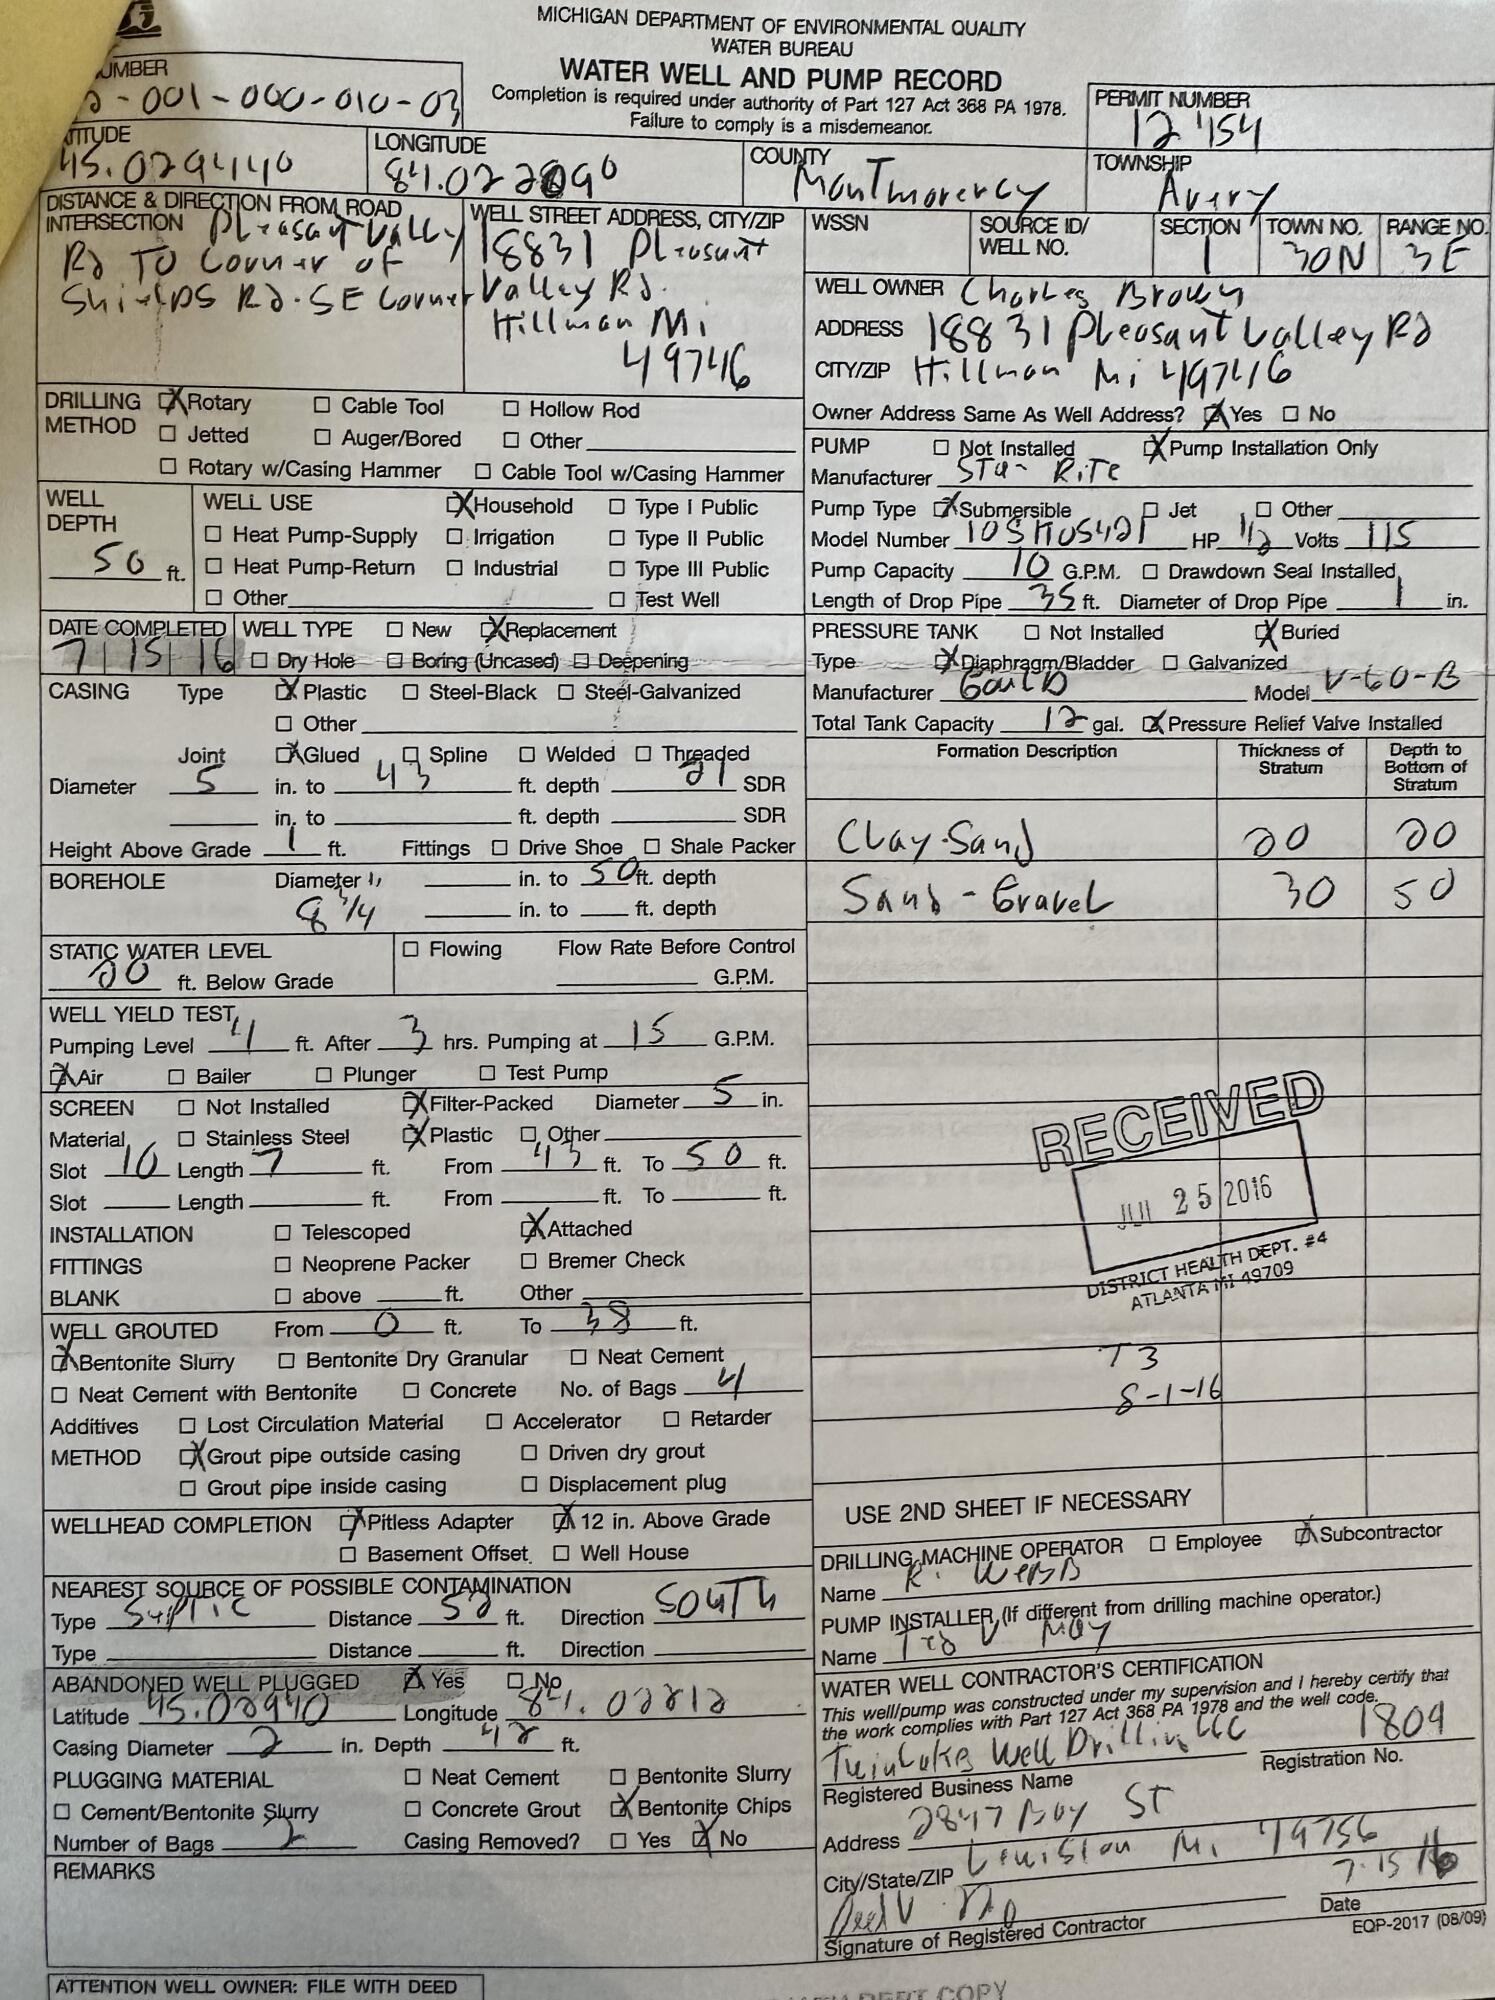 MICHIGAN DEPARTMENT OF ENVIRONMENTAL QUALITY
WATER BUREAU
WATER WELL AND PUMP RECORD
Completion is required under authority of Part 127 Act 368 PA 1978.
Failure to comply is a misdemeanor.
UMBER
-001-000-010-03
PERMIT NUMBER
12-154
TITUDE
45.029440
LONGITUDE
COUNTY
Montmorency
TOWNSHIP
Avery
DISTANCE & DIRECTION FROM ROAD
INTERSECTION Pleasant Vally
Rd TO Corner of
Shields Rd. SE Corner
WELL STREET ADDRESS, CITY/ZIP
18831 Pleasant
Valley Rd.
Hillman Mi
49746
WSSN
SOURCE ID/
WELL NO.
SECTION
1
TOWN NO.
30N
RANGE NO.
3E
WELL OWNER Charles Brown
ADDRESS 18831 Pleasant Valley Rd
CITY/ZIP Hillman Mi 49746
Owner Address Same As Well Address? ☒ Yes ☐ No
DRILLING METHOD ☒ Rotary ☐ Cable Tool ☐ Hollow Rod
☐ Jetted ☐ Auger/Bored ☐ Other
☐ Rotary w/Casing Hammer ☐ Cable Tool w/Casing Hammer
PUMP ☐ Not Installed ☒ Pump Installation Only
Manufacturer Sta-Rite
Pump Type ☒ Submersible ☐ Jet ☐ Other
Model Number HP 1/2 Volts 115
Pump Capacity 10 G.P.M. ☐ Drawdown Seal Installed
Length of Drop Pipe 35 ft. Diameter of Drop Pipe 1 in.
WELL DEPTH
50 ft.
WELL USE ☒ Household ☐ Type I Public
☐ Heat Pump-Supply ☐ Irrigation ☐ Type II Public
☐ Heat Pump-Return ☐ Industrial ☐ Type III Public
☐ Other ☐ Test Well
DATE COMPLETED
7 | 15 | 16
WELL TYPE ☐ New ☒ Replacement
☐ Dry Hole ☐ Boring (Uncased) ☐ Deepening
PRESSURE TANK ☐ Not Installed ☒ Buried
Type ☒ Diaphragm/Bladder ☐ Galvanized
Manufacturer Gould Model V-60-B
Total Tank Capacity 12 gal. ☒ Pressure Relief Valve Installed
CASING Type ☒ Plastic ☐ Steel-Black ☐ Steel-Galvanized
☐ Other
Joint ☒ Glued ☐ Spline ☐ Welded ☐ Threaded
Diameter 5 in. to 43 ft. depth 21 SDR
in. to ft. depth SDR
Height Above Grade 1 ft. Fittings ☐ Drive Shoe ☐ Shale Packer
BOREHOLE Diameter in. to 50 ft. depth
8 3/4 in. to ft. depth
STATIC WATER LEVEL
20 ft. Below Grade
☐ Flowing Flow Rate Before Control
G.P.M.
WELL YIELD TEST
Pumping Level 4 ft. After 3 hrs. Pumping at 15 G.P.M.
☒ Air ☐ Bailer ☐ Plunger ☐ Test Pump
SCREEN ☐ Not Installed ☒ Filter-Packed Diameter 5 in.
Material ☐ Stainless Steel ☒ Plastic ☐ Other
Slot 10 Length 7 ft. From 43 ft. To 50 ft.
Slot Length ft. From ft. To ft.
INSTALLATION ☐ Telescoped ☒ Attached
FITTINGS ☐ Neoprene Packer ☐ Bremer Check
BLANK ☐ above ft. Other
WELL GROUTED From 0 ft. To 38 ft.
☒ Bentonite Slurry ☐ Bentonite Dry Granular ☐ Neat Cement
☐ Neat Cement with Bentonite ☐ Concrete No. of Bags 4
Additives ☐ Lost Circulation Material ☐ Accelerator ☐ Retarder
METHOD ☒ Grout pipe outside casing ☐ Driven dry grout
☐ Grout pipe inside casing ☐ Displacement plug
WELLHEAD COMPLETION ☒ Pitless Adapter ☒ 12 in. Above Grade
☐ Basement Offset ☐ Well House
NEAREST SOURCE OF POSSIBLE CONTAMINATION
Type Septic Distance 52 ft. Direction South
Type Distance ft. Direction
ABANDONED WELL PLUGGED ☒ Yes ☐ No
Latitude 45.02940 Longitude 84.02212
Casing Diameter 2 in. Depth 42 ft.
PLUGGING MATERIAL ☐ Neat Cement ☐ Bentonite Slurry
☐ Cement/Bentonite Slurry ☐ Concrete Grout ☒ Bentonite Chips
Number of Bags 2 Casing Removed? ☐ Yes ☒ No
REMARKS
ATTENTION WELL OWNER: FILE WITH DEED
Formation Description Thickness of Stratum Depth to Bottom of Stratum
Clay-Sand 20 20
Sand-Gravel 30 50
RECEIVED
JUL 25 2016
DISTRICT HEALTH DEPT. #4
ATLANTA MI 49709
T3
8-1-16
USE 2ND SHEET IF NECESSARY
DRILLING MACHINE OPERATOR ☐ Employee ☒ Subcontractor
Name R. Webb
PUMP INSTALLER (If different from drilling machine operator.)
Name Ted V May
WATER WELL CONTRACTOR'S CERTIFICATION
This well/pump was constructed under my supervision and I hereby certify that
the work complies with Part 127 Act 368 PA 1978 and the well code.
Twin Lakes Well Drilling LLC 1809
Registered Business Name Registration No.
Address 2847 Bay St
City/State/ZIP Lewiston Mi 49756
7-15 16
Signature of Registered Contractor Date
EQP-2017 (08/09)
DEPT COPY